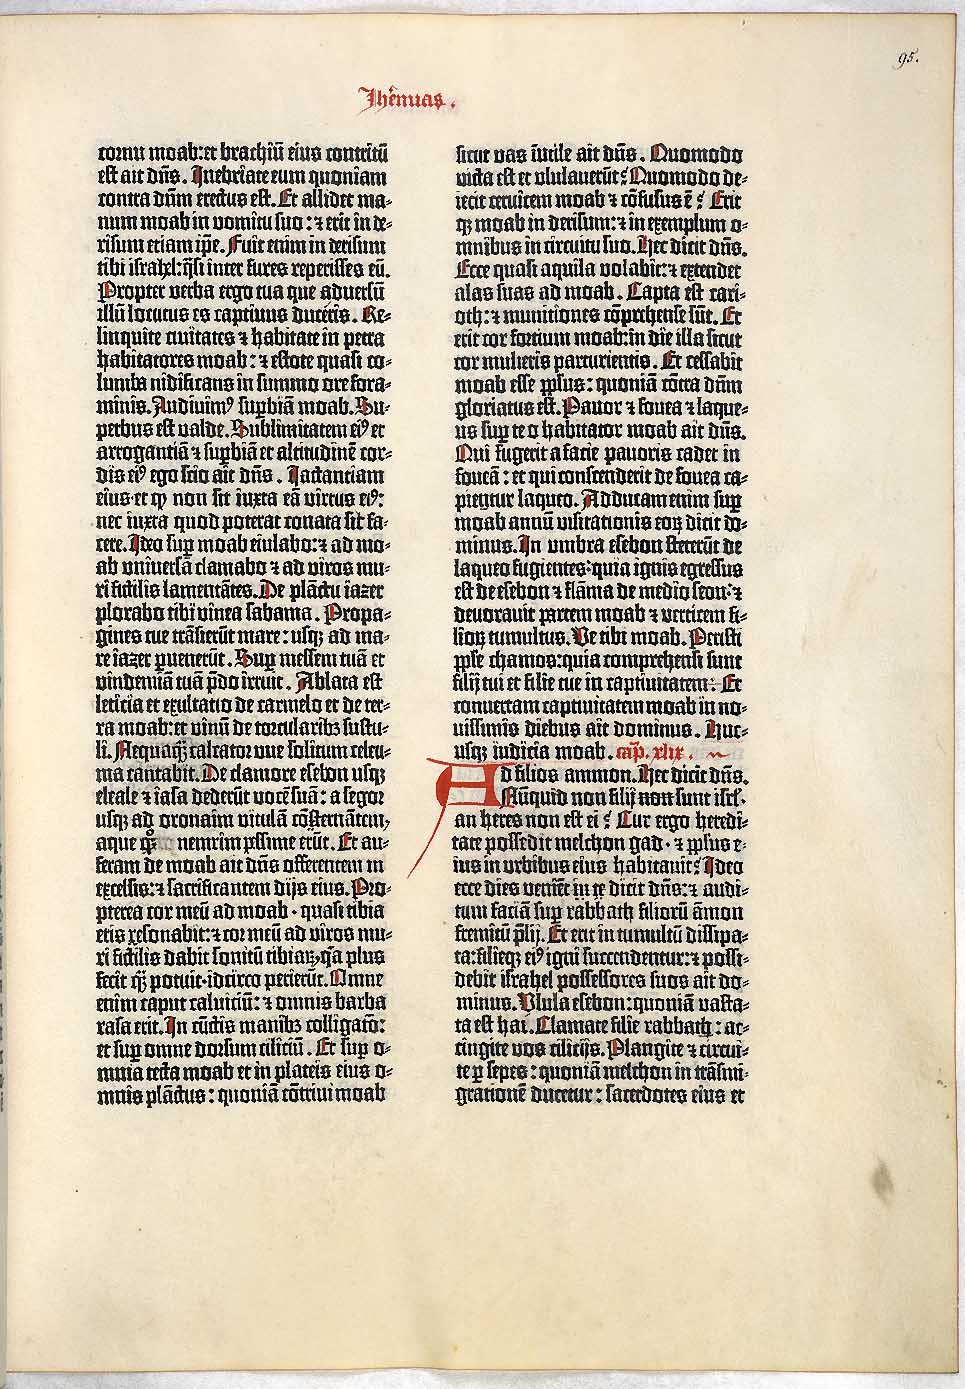 95.
Jheremias.
cornu moab: et brachiū eius contritū
est ait dn̄s. Inebriate eum quoniam
contra dn̄m erectus est. Et allidet ma-
num moab in vomitu suo: ⁊ erit in de-
risum etiam ip̄e. Fuit enim in derisum
tibi israhel: q̄si inter fures reperisses eū.
Propter verba ergo tua que adversū
illū locutus es captivus duceris. Re-
linquite civitates ⁊ habitate in petra
habitatores moab: ⁊ estote quasi co-
lumba nidificans in summo ore fora-
minis. Audivimꝰ suꝑbiā moab. Su-
perbus est valde. Sublimitatem eiꝰ et
arrogantiā ⁊ suꝑbiā et altitudinē cor-
dis eiꝰ ego scio ait dn̄s. Iactantiam
eius et ꝙ non sit iuxta eā virtus eiꝰ:
nec iuxta quod poterat conata sit fa-
cere. Ideo suꝑ moab eiulabo: ⁊ ad mo-
ab universā clamabo ⁊ ad viros mu-
ri fictilis lamentātes. De plāctu iazer
plorabo tibi vinea sabama. Propa-
gines tue trāsierūt mare: usqꝫ ad ma-
re iazer ꝑvenerūt. Suꝑ messem tuā et
vindemiā tuā p̄do irruit. Ablata est
leticia et exultatio de carmelo et de ter-
ra moab: et vinū de torcularibꝫ sustu-
li. Nequaqꝫ calcator uve solitum celeu-
ma cantabit. De clamore esebon usqꝫ
eleale ⁊ iasa dederūt vocē suā: a segor
usqꝫ ad oronaim vitulā cōsternātem,
aque nemrim pessime erūt. Et au-
feram de moab ait dn̄s offerentem in
excelsis: ⁊ sacrificantem dijs eius. Pro-
pterea cor meū ad moab · quasi tibia
eris resonabit: ⁊ cor meū ad viros mu-
ri fictilis dabit sonitū tibiaꝝ, q̄a plus
fecit qꝫ potuit · idcirco perierūt. Omne
enim caput calviciū: ⁊ omnis barba
rasa erit. In cūctis manibꝫ colligatō:
et suꝑ omne dorsum ciliciū. Et suꝑ o-
mnia tecta moab et in plateis eius o-
mnis plāctus: quoniā cōtrivi moab
sicut vas īutile ait dn̄s. Quomodo
victa est et ululaverūt? Quomodo de-
iecit cervicem moab ⁊ cōfusus ē? Erit
qꝫ moab in derisum: ⁊ in exemplum o-
mnibus in circuitu suo. Hec dicit dn̄s.
Ecce quasi aquila volabit: ⁊ extendet
alas suas ad moab. Capta est cari-
oth: ⁊ munitiones cōprehense sūt. Et
erit cor fortium moab: in die illa sicut
cor mulieris parturientis. Et cessabit
moab esse ꝑplus: quoniā cōtra dn̄m
gloriatus est. Pavor ⁊ fovea ⁊ laque-
us suꝑ te o habitator moab ait dn̄s.
Qui fugerit a facie pavoris cadet in
foveā: et qui conscenderit de fovea ca-
pietur laqueo. Adducam enim suꝑ
moab annū visitationis eoꝝ dicit do-
minus. In umbra esebon steterūt de
laqueo fugientes: quia ignis egressus
est de esebon ⁊ flāma de medio seon: ⁊
devoravit partem moab ⁊ verticem fi-
lioꝝ tumultus. Ve tibi moab. Peristi
pp̄le chamos: quia comprehensi sunt
filij tui et filie tue in captivitatem. Et
convertam captivitatem moab in no-
vissimis diebus ait dominus. Huc-
usqꝫ iudicia moab. cap̄. xlix.
Ad filios ammon. Hec dicit dn̄s.
Nūquid non filij non sunt isrl̄ ·
an heres non est ei? Cur ergo heredi-
tate possedit melchon gad · ⁊ pp̄lus e-
ius in urbibus eius habitavit? Ideo
ecce dies veniēt in qe dicit dn̄s: ⁊ audi-
tum faciā suꝑ rabbath filiorū āmon
fremitū p̄lij. Et erit in tumultū dissipa-
ta: filieqꝫ eiꝰ igni succendentur: ⁊ possi-
debit israhel possessores suos ait do-
minus. Ulula esebon: quoniā vasta-
ta est hai. Clamate filie rabbath: ac-
cingite vos cilicijs. Plangite ⁊ circui-
te ꝑ sepes: quoniā melchon in trāsmi-
grationē ducetur: sacerdotes eius et